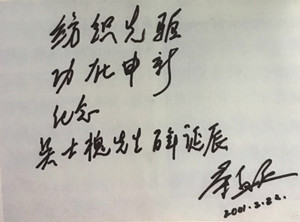 纺织先驱
功在申新
纪念
吴士槐先生百年诞辰
2001.2.22.